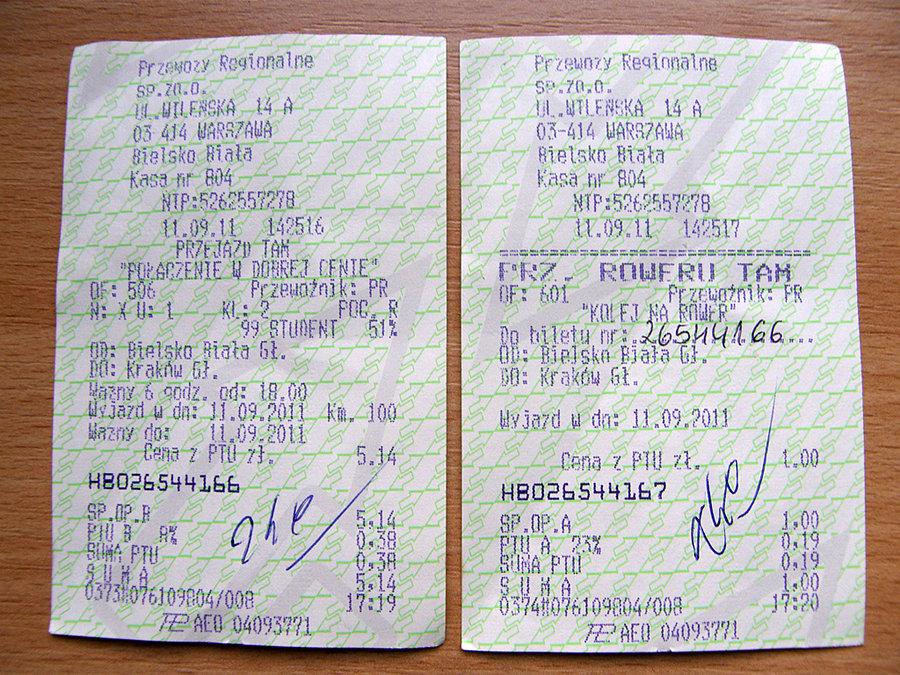 Przewozy Regionalne
sp.zo.o.
UL.WILEŃSKA 14 A
03-414 WARSZAWA
Bielsko Biała
Kasa nr 804
NIP:5262557278
11.09.11 142516
PRZEJAZD TAM
"POŁĄCZENIE W DOBREJ CENIE"
OF: 596 Przewoźnik: PR
N: X U: 1 KL: 2 POC. R
99 STUDENT 51%
OD: Bielsko Biała Gł.
DO: Kraków Gł.
Ważny 6 godz. od: 18.00
Wyjazd w dn: 11.09.2011 Km. 100
Ważny do: 11.09.2011
Cena z PTU zł. 5.14
HB026544166
SP.OP.B 5,14
PTU B 8% 0,38
SUMA PTU 0,38
S U M A 5,14
0373#076109804/008 17:19
AEO 04093771
Przewozy Regionalne
sp.zo.o.
UL.WILEŃSKA 14 A
03-414 WARSZAWA
Bielsko Biała
Kasa nr 804
NIP:5262557278
11.09.11 142517
PRZ. ROWERU TAM
OF: 601 Przewoźnik: PR
"KOLEJ NA ROWER"
Do biletu nr:.26544166....
OD: Bielsko Biała Gł.
DO: Kraków Gł.
Wyjazd w dn: 11.09.2011
Cena z PTU zł. 1.00
HB026544167
SP.OP.A 1,00
PTU A 23% 0,19
SUMA PTU 0,19
S U M A 1,00
0374#076109804/008 17:20
AEO 04093771